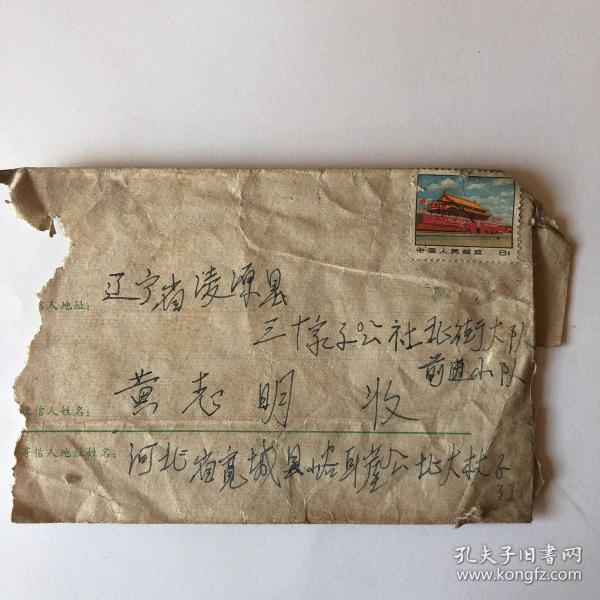 中国人民邮政 8分
信人地址： 辽宁省凌源县
三十家子公社北街大队
前进小队
信人姓名： 黄志明 收
寄信人地址姓名： 河北省宽城县 公社大杖子
孔夫子旧书网
www.kongfz.com